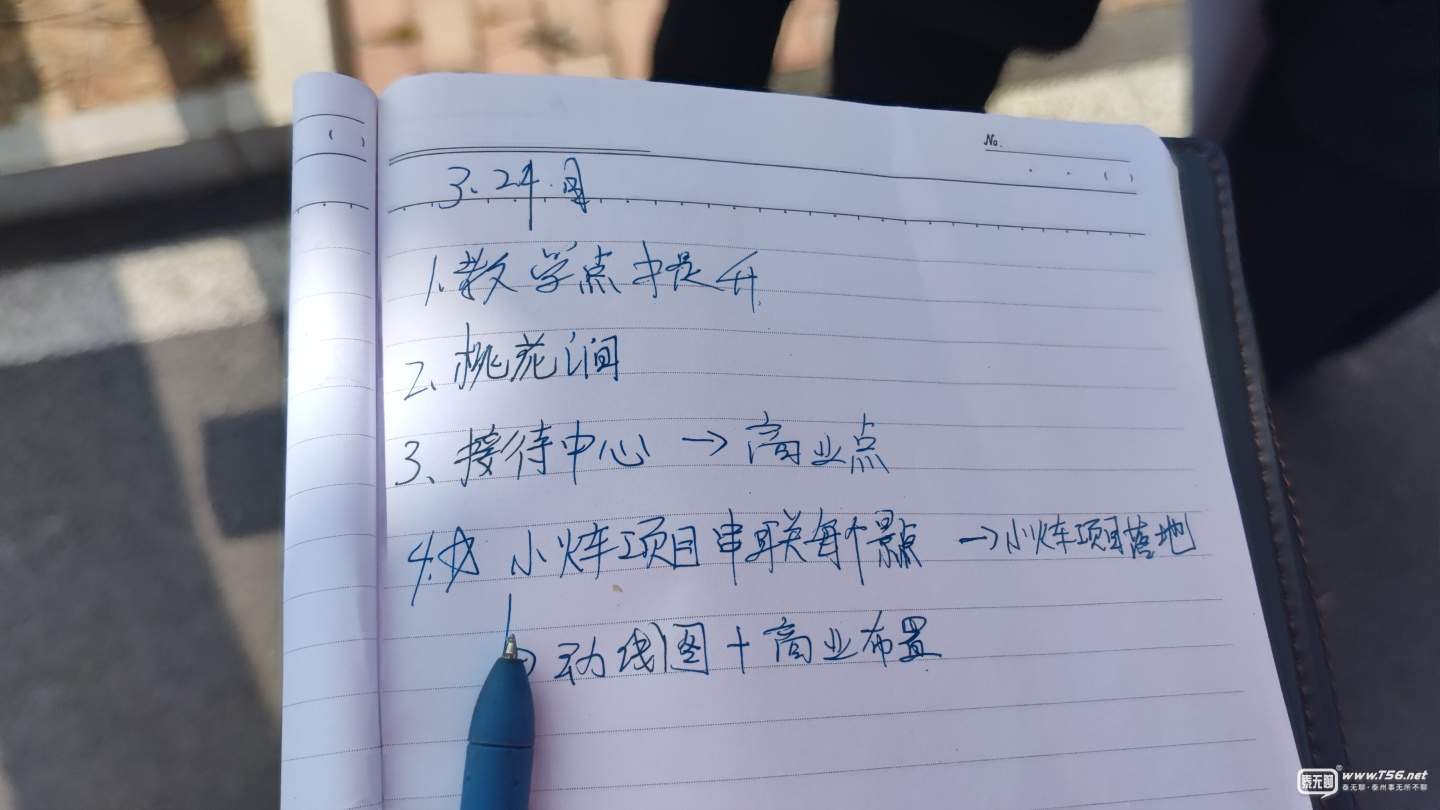 No.
( )
( )
3.24.目
1.教学点提升
2、桃花涧
3、接待中心 → 商业点
4.☆ 小火车项目串联每个景点 →小火车项目落地
动线图 + 商业布置
泰无聊®
www.T56.net
泰无聊·泰州事无所不聊